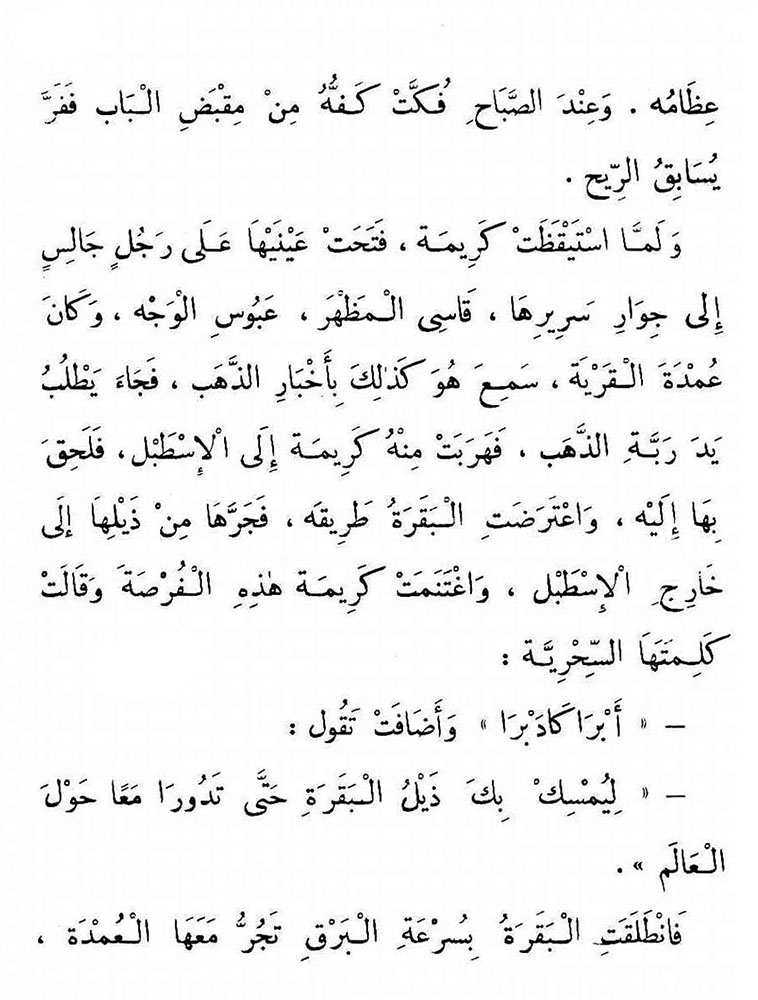 عِظَامُه . وَعِنْدَ الصَّبَاحِ فُكَّتْ كَفُّهُ مِنْ مِقْبَضِ الْبَاب فَفَرَّ
يُسَابِقُ الرِّيح .
وَلَمَّا اسْتَيْقَظَتْ كَرِيمَة ، فَتَحَتْ عَيْنَيْهَا عَلَى رَجُلٍ جَالِسٍ
إِلى جِوَارِ سَرِيرِهَا ، قَاسِى الْمَظْهَر ، عَبُوسِ الْوَجْه ، وَكَانَ
عُمْدَةَ الْقَرْيَة ، سَمِعَ هُوَ كَذٰلِكَ بِأَخْبَارِ الذَّهَب ، فَجَاءَ يَطْلُبُ
يَدَ رَبَّةِ الذَّهَب ، فَهَرَبَتْ مِنْهُ كَرِيمَة إِلَى الْإِسْطَبْل ، فَلَحِقَ
بِهَا إِلَيْه ، وَاعْتَرَضَتِ الْبَقَرَةُ طَرِيقَه ، فَجَرَّهَا مِنْ ذَيْلِهَا إِلَى
خَارِجِ الْإِسْطَبْل ، وَاغْتَنَمَتْ كَرِيمَة هٰذِهِ الْفُرْصَةَ وَقَالَتْ
كَلِمَتَهَا السِّحْرِيَّة :
– « أَبْرَاكَادَبْرَا » وَأَضَافَتْ تَقُول :
– « لِيُمْسِكْ بِكَ ذَيْلُ الْبَقَرَةِ حَتَّى تَدُورَا مَعًا حَوْلَ
الْعَالَم » .
فَانْطَلَقَتِ الْبَقَرَةُ بِسُرْعَةِ الْبَرْقِ تَجُرُّ مَعَهَا الْعُمْدَة ،